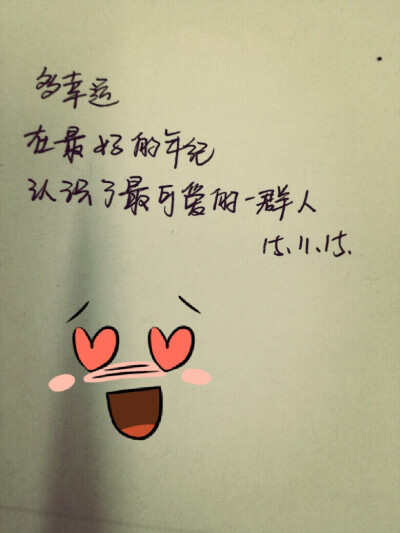 多幸运
在最好的年纪
认识了最可爱的一群人
15.11.15.